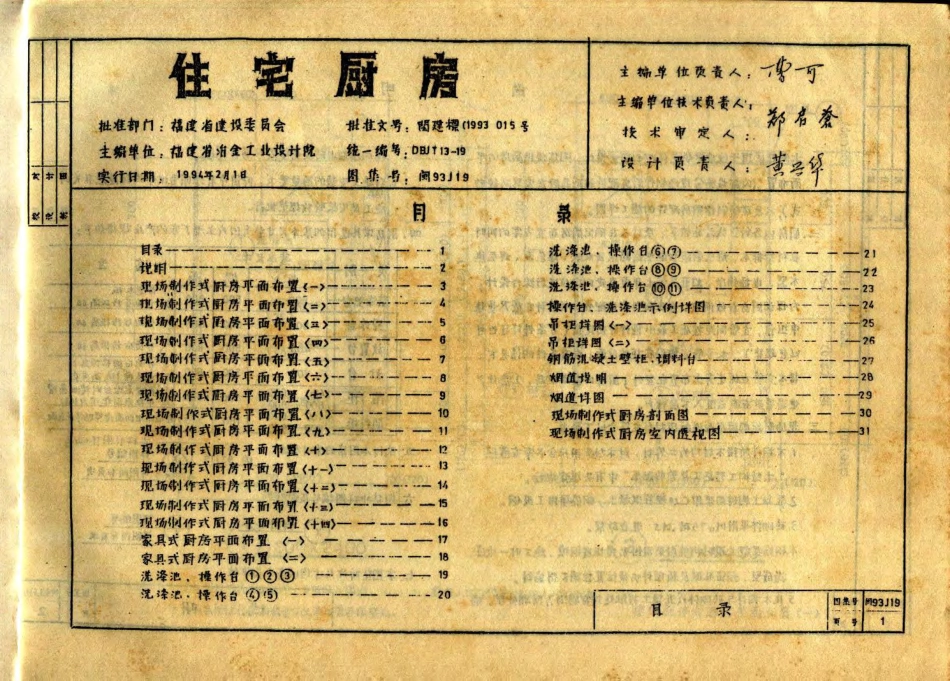 住宅厨房
批准部门：福建省建设委员会
批准文号：闽建标(1993 015号
主编单位：福建省冶金工业设计院
统一编号：DBJT13-19
实行日期：1994年2月1日
图集号：闽93J19
主编单位负责人：
主编单位技术负责人：
技术审定人：
设计负责人：
目 录
目录 1
说明 2
现场制作式厨房平面布置〈一〉 3
现场制作式厨房平面布置〈二〉 4
现场制作式厨房平面布置〈三〉 5
现场制作式厨房平面布置〈四〉 6
现场制作式厨房平面布置〈五〉 7
现场制作式厨房平面布置〈六〉 8
现场制作式厨房平面布置〈七〉 9
现场制作式厨房平面布置〈八〉 10
现场制作式厨房平面布置〈九〉 11
现场制作式厨房平面布置〈十〉 12
现场制作式厨房平面布置〈十一〉 13
现场制作式厨房平面布置〈十二〉 14
现场制作式厨房平面布置〈十三〉 15
现场制作式厨房平面布置〈十四〉 16
家具式厨房平面布置〈一〉 17
家具式厨房平面布置〈二〉 18
洗涤池．操作台①②③ 19
洗涤池．操作台④⑤ 20
洗涤池．操作台⑥⑦ 21
洗涤池．操作台⑧⑨ 22
洗涤池．操作台⑩⑪ 23
操作台、洗涤池示例详图 24
吊柜详图〈一〉 25
吊柜详图〈二〉 26
钢筋混凝土壁柜、调料台 27
烟道说明 28
烟道详图 29
现场制作式厨房剖面图 30
现场制作式厨房室内透视图 31
目 录
图集号 闽93J19
页号 1